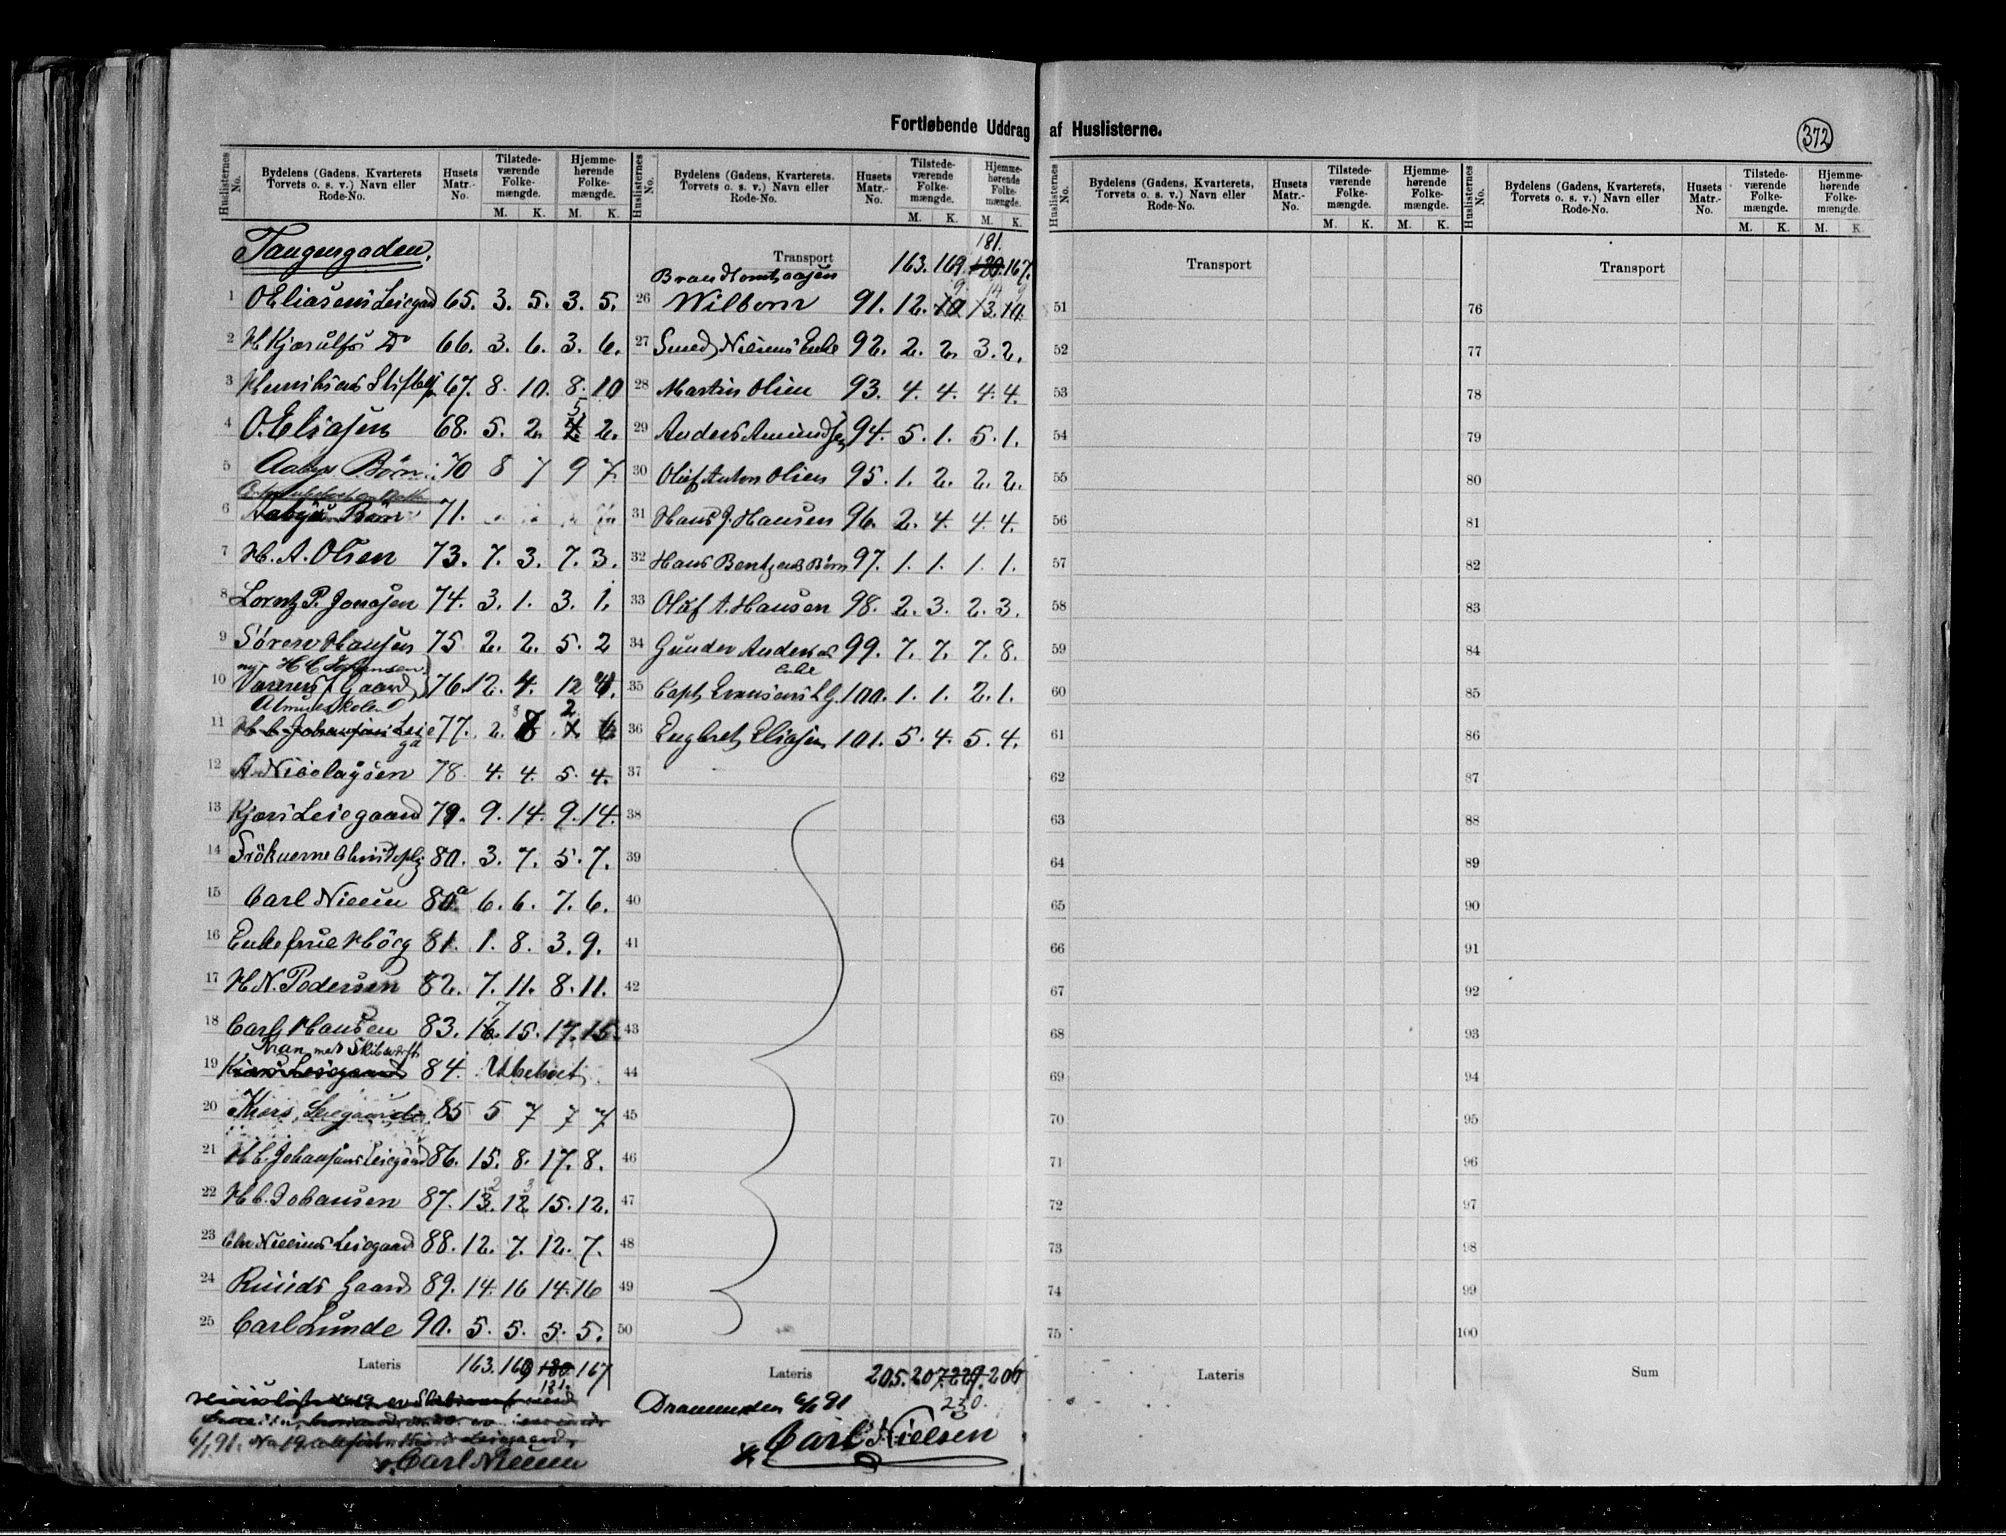 Fortløbende Uddrag af Huslisterne.
372
Huslisternes No. Bydelens (Gadens, Kvarterets Torvets o. s. v.) Navn eller Rode-No. Husets Matr.-No. Tilstedeværende Folkemængde. M. K. Hjemmehørende Folkemængde. M. K.
Tangengaden.
1 O Eliasens Leiegaard 65. 3. 5. 3. 5.
2 H Kjærulfs Do 66. 3. 6. 3. 6.
3 Henriksens Stiftelse 67. 8. 10. 8. 10
4 O. Eliasen 68. 5. 2. 5 2.
5 Aabys Børn 70 8 7 9 7.
6 Aabys Børn 71.
7 H. A. Olsen 73. 7. 3. 7. 3.
8 Lorentz P. Jonasen 74. 3. 1. 3. 1.
9 Søren Hansen 75 2. 2. 5. 2
ny H C Johansen
10 Gaard 76. 12. 4. 12 4.
Almueskolen
11 H. C. Johansens Leiega 77. 2. 8 2 6
12 A. Nicolaysen 78. 4. 4. 5. 4.
13 Kjærs Leiegaard 79. 9. 14. 9. 14.
14 Frøknerne 80. 3. 7. 5. 7.
15 Carl Nielsen 80a 6. 6. 7. 6.
16 Enkefrue Høeg 81. 1. 8. 3. 9.
17 H. N. Pedersen 82. 7. 11. 8. 11.
18 Carl Hansen 83. 16. 7 15. 17. 15.
Kran med Skibsværft
19 Kiærs Leiegaard 84. Ubeboet
20 Kiærs Leiegaard 85 5 7 7 7
21 H C. Johansens Leiegaard 86. 15. 8. 17. 8.
22 H C. Johansen 87. 13. 2 12 3 15. 12.
23 Chr Nielsens Leiegaard 88. 12. 7. 12. 7.
24 Ruuds Gaard 89. 14. 16 14. 16
25 Carl Lunde 90. 5. 5. 5. 5.
Lateris 163. 169 180 167
181.
6/1 91. No 19
Carl Nielsen
Huslisternes No. Bydelens (Gadens, Kvarterets, Torvets o. s. v.) Navn eller Rode-No. Husets Matr.-No. Tilstedeværende Folkemængde. M. K. Hjemmehørende Folkemængde. M. K.
181.
Transport 163. 169. 180. 167.
26 Wilborn 91. 12. 10 9. 13. 14 10. 9
27 Smed Nielsens Enke 92. 2. 2. 3. 2.
28 Martin Olsen 93. 4. 4. 4. 4.
29 Anders Amundsen 94. 5. 1. 5. 1.
30 Oluf Anton Olsen 95. 1. 2. 2. 2.
31 Hans J. Hansen 96. 2. 4. 4. 4.
32 Hans Bentzens Børn 97. 1. 1. 1. 1.
33 Oluf A. Hansen 98. 2. 3. 2. 3.
34 Gunder Anderson Enke 99. 7. 7. 7. 8.
35 Capt Evensens L G. 100. 1. 1. 2. 1.
36 Engbret Eliasen 101. 5. 4. 5. 4.
37
38
39
40
41
42
43
44
45
46
47
48
49
50
Lateris 205. 207. 229. 206
230.
Drammen den 6/1 91
Carl Nielsen
Huslisternes No. Bydelens (Gadens, Kvarterets, Torvets o. s. v.) Navn eller Rode-No. Husets Matr.-No. Tilstedeværende Folkemængde. M. K. Hjemmehørende Folkemængde. M. K.
Transport
51
52
53
54
55
56
57
58
59
60
61
62
63
64
65
66
67
68
69
70
71
72
73
74
75
Lateris
Huslisternes No. Bydelens (Gadens, Kvarterets, Torvets o. s. v.) Navn eller Rode-No. Husets Matr.-No. Tilstedeværende Folkemængde. M. K. Hjemmehørende Folkemængde. M. K.
Transport
76
77
78
79
80
81
82
83
84
85
86
87
88
89
90
91
92
93
94
95
96
97
98
99
100
Sum